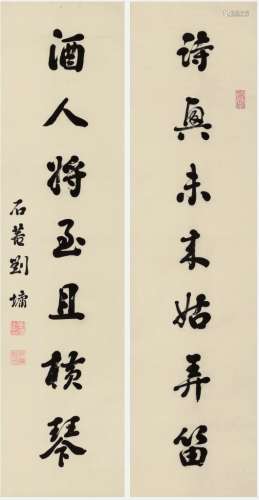 詩興未来姑弄笛
酒人将至且横琴
石菴劉墉